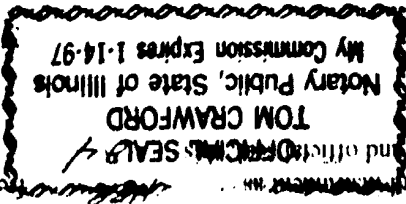 and official
OFFICIAL SEAL
TOM CRAWFORD
Notary Public, State of Illinois
My Commission Expires 1-14-97